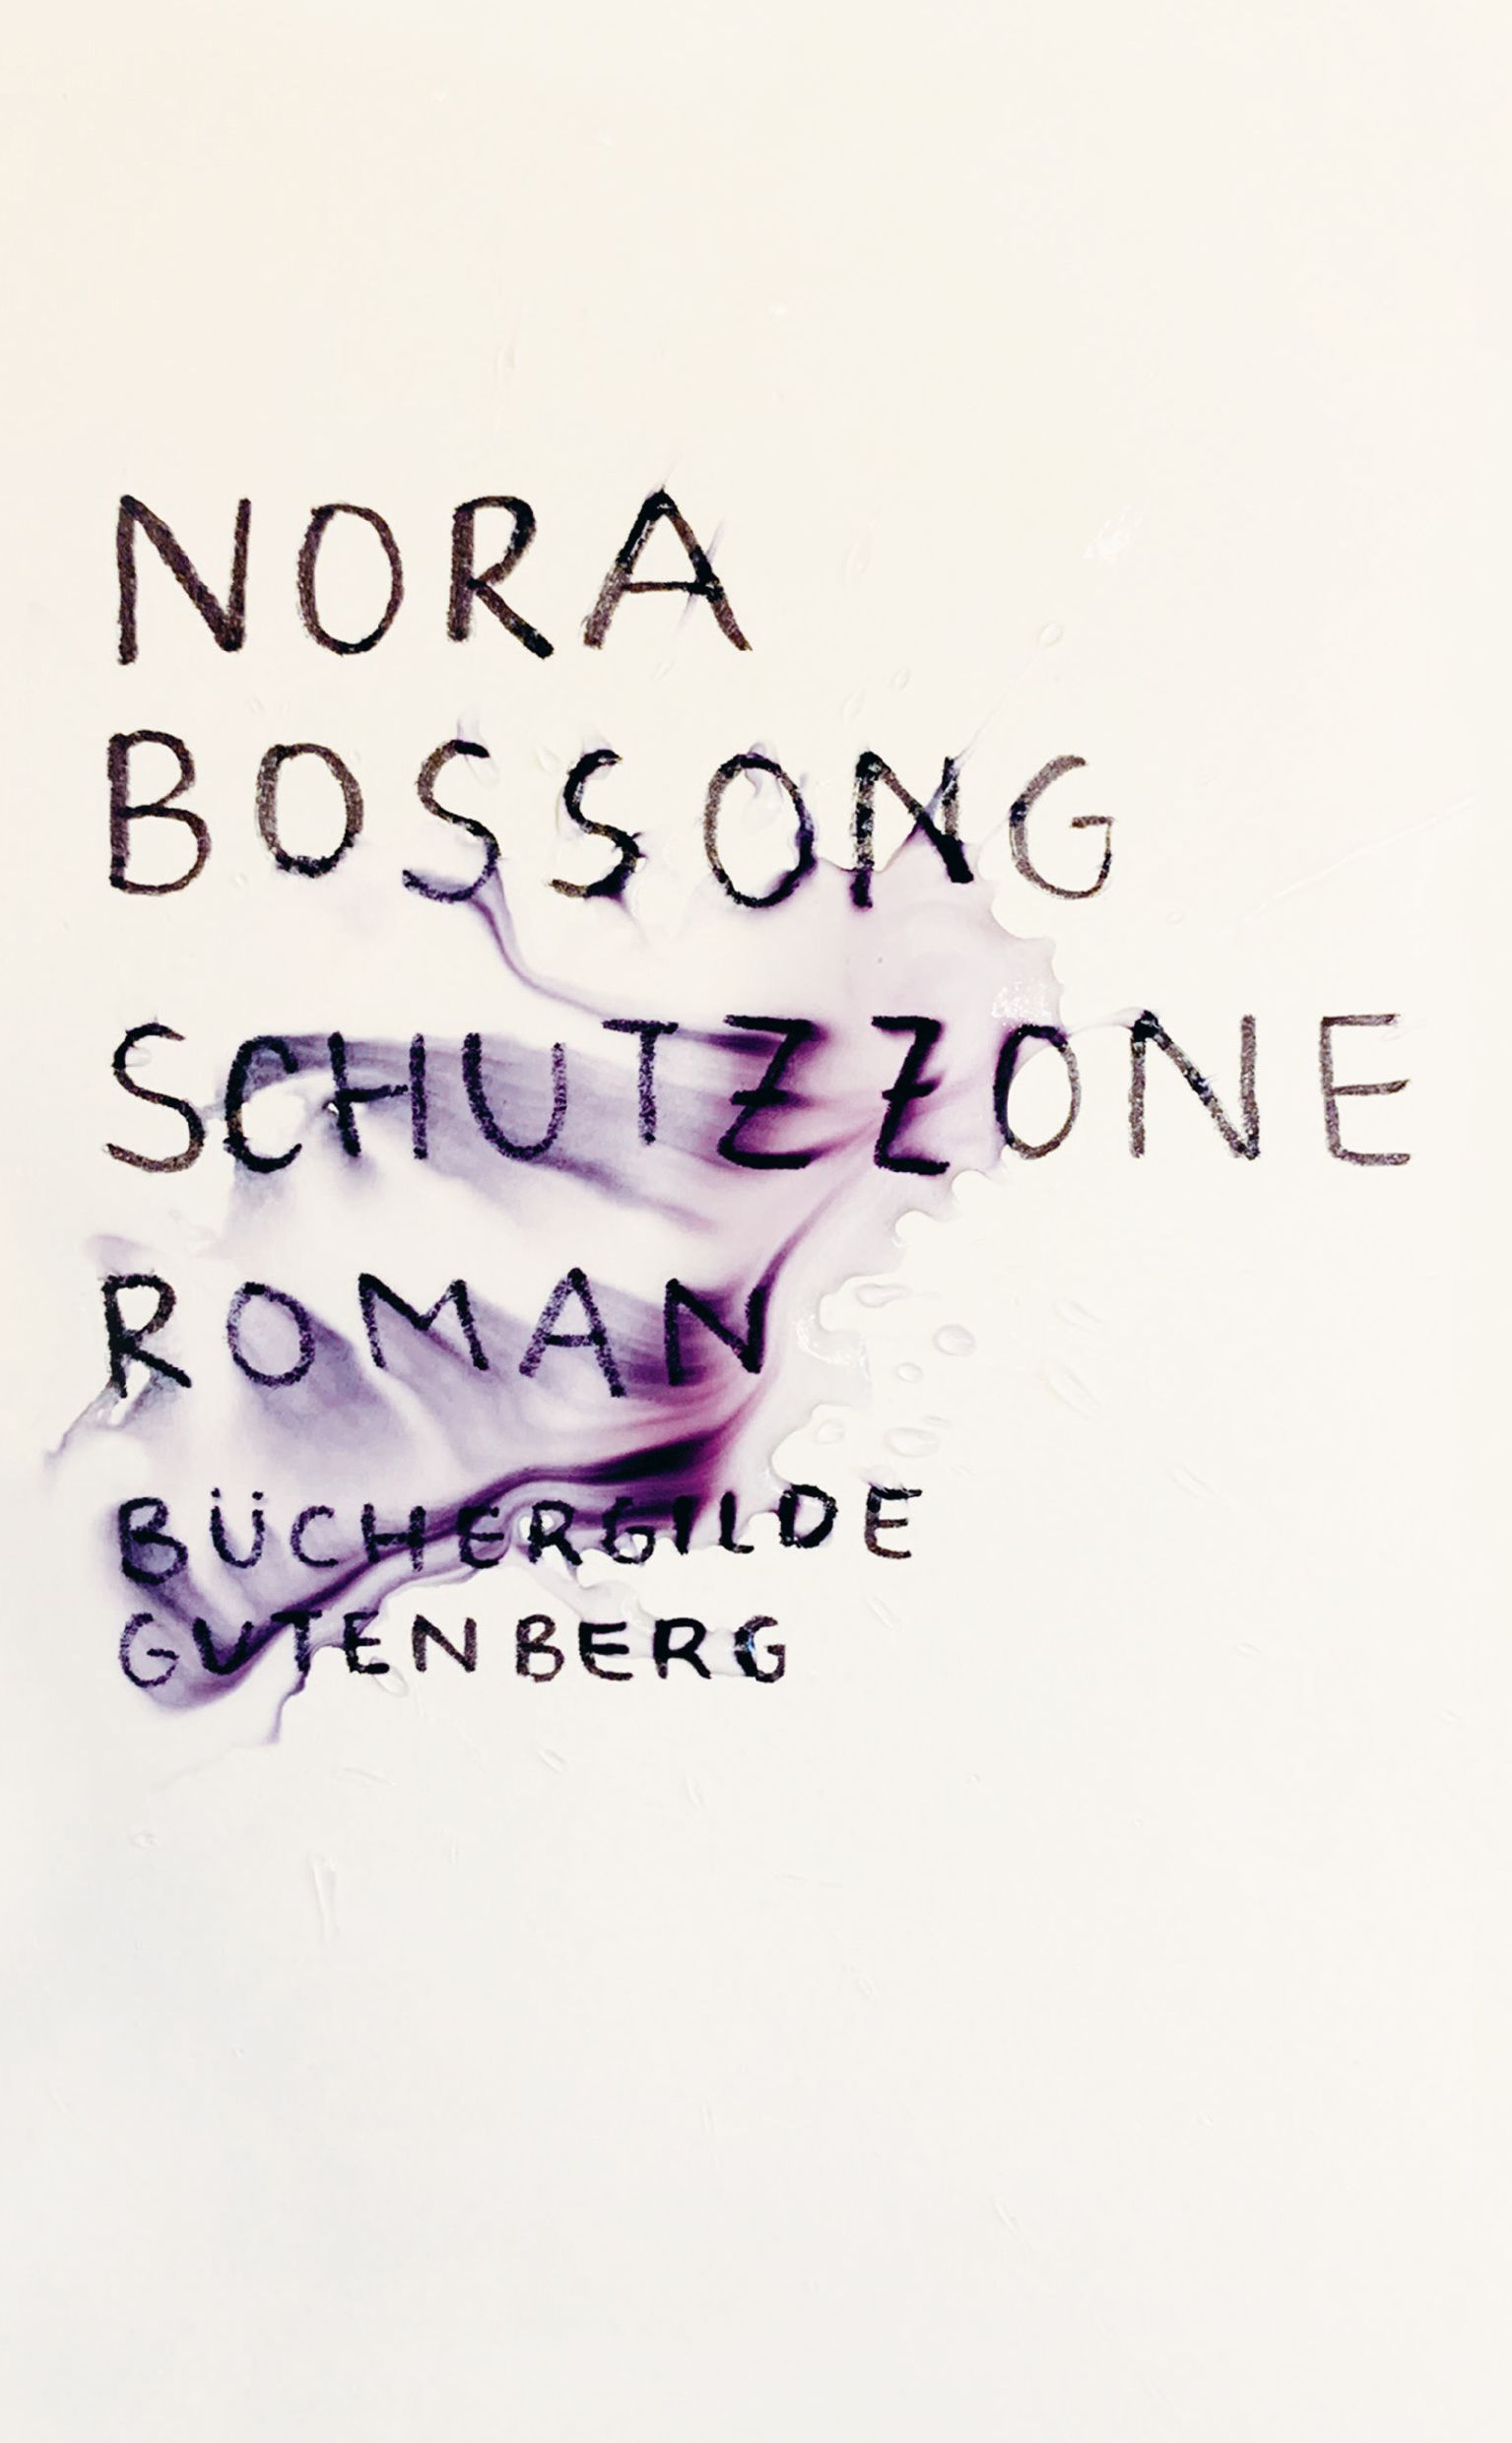 NORA
BOSSONG
SCHUTZZONE
ROMAN
BÜCHERGILDE
GUTENBERG